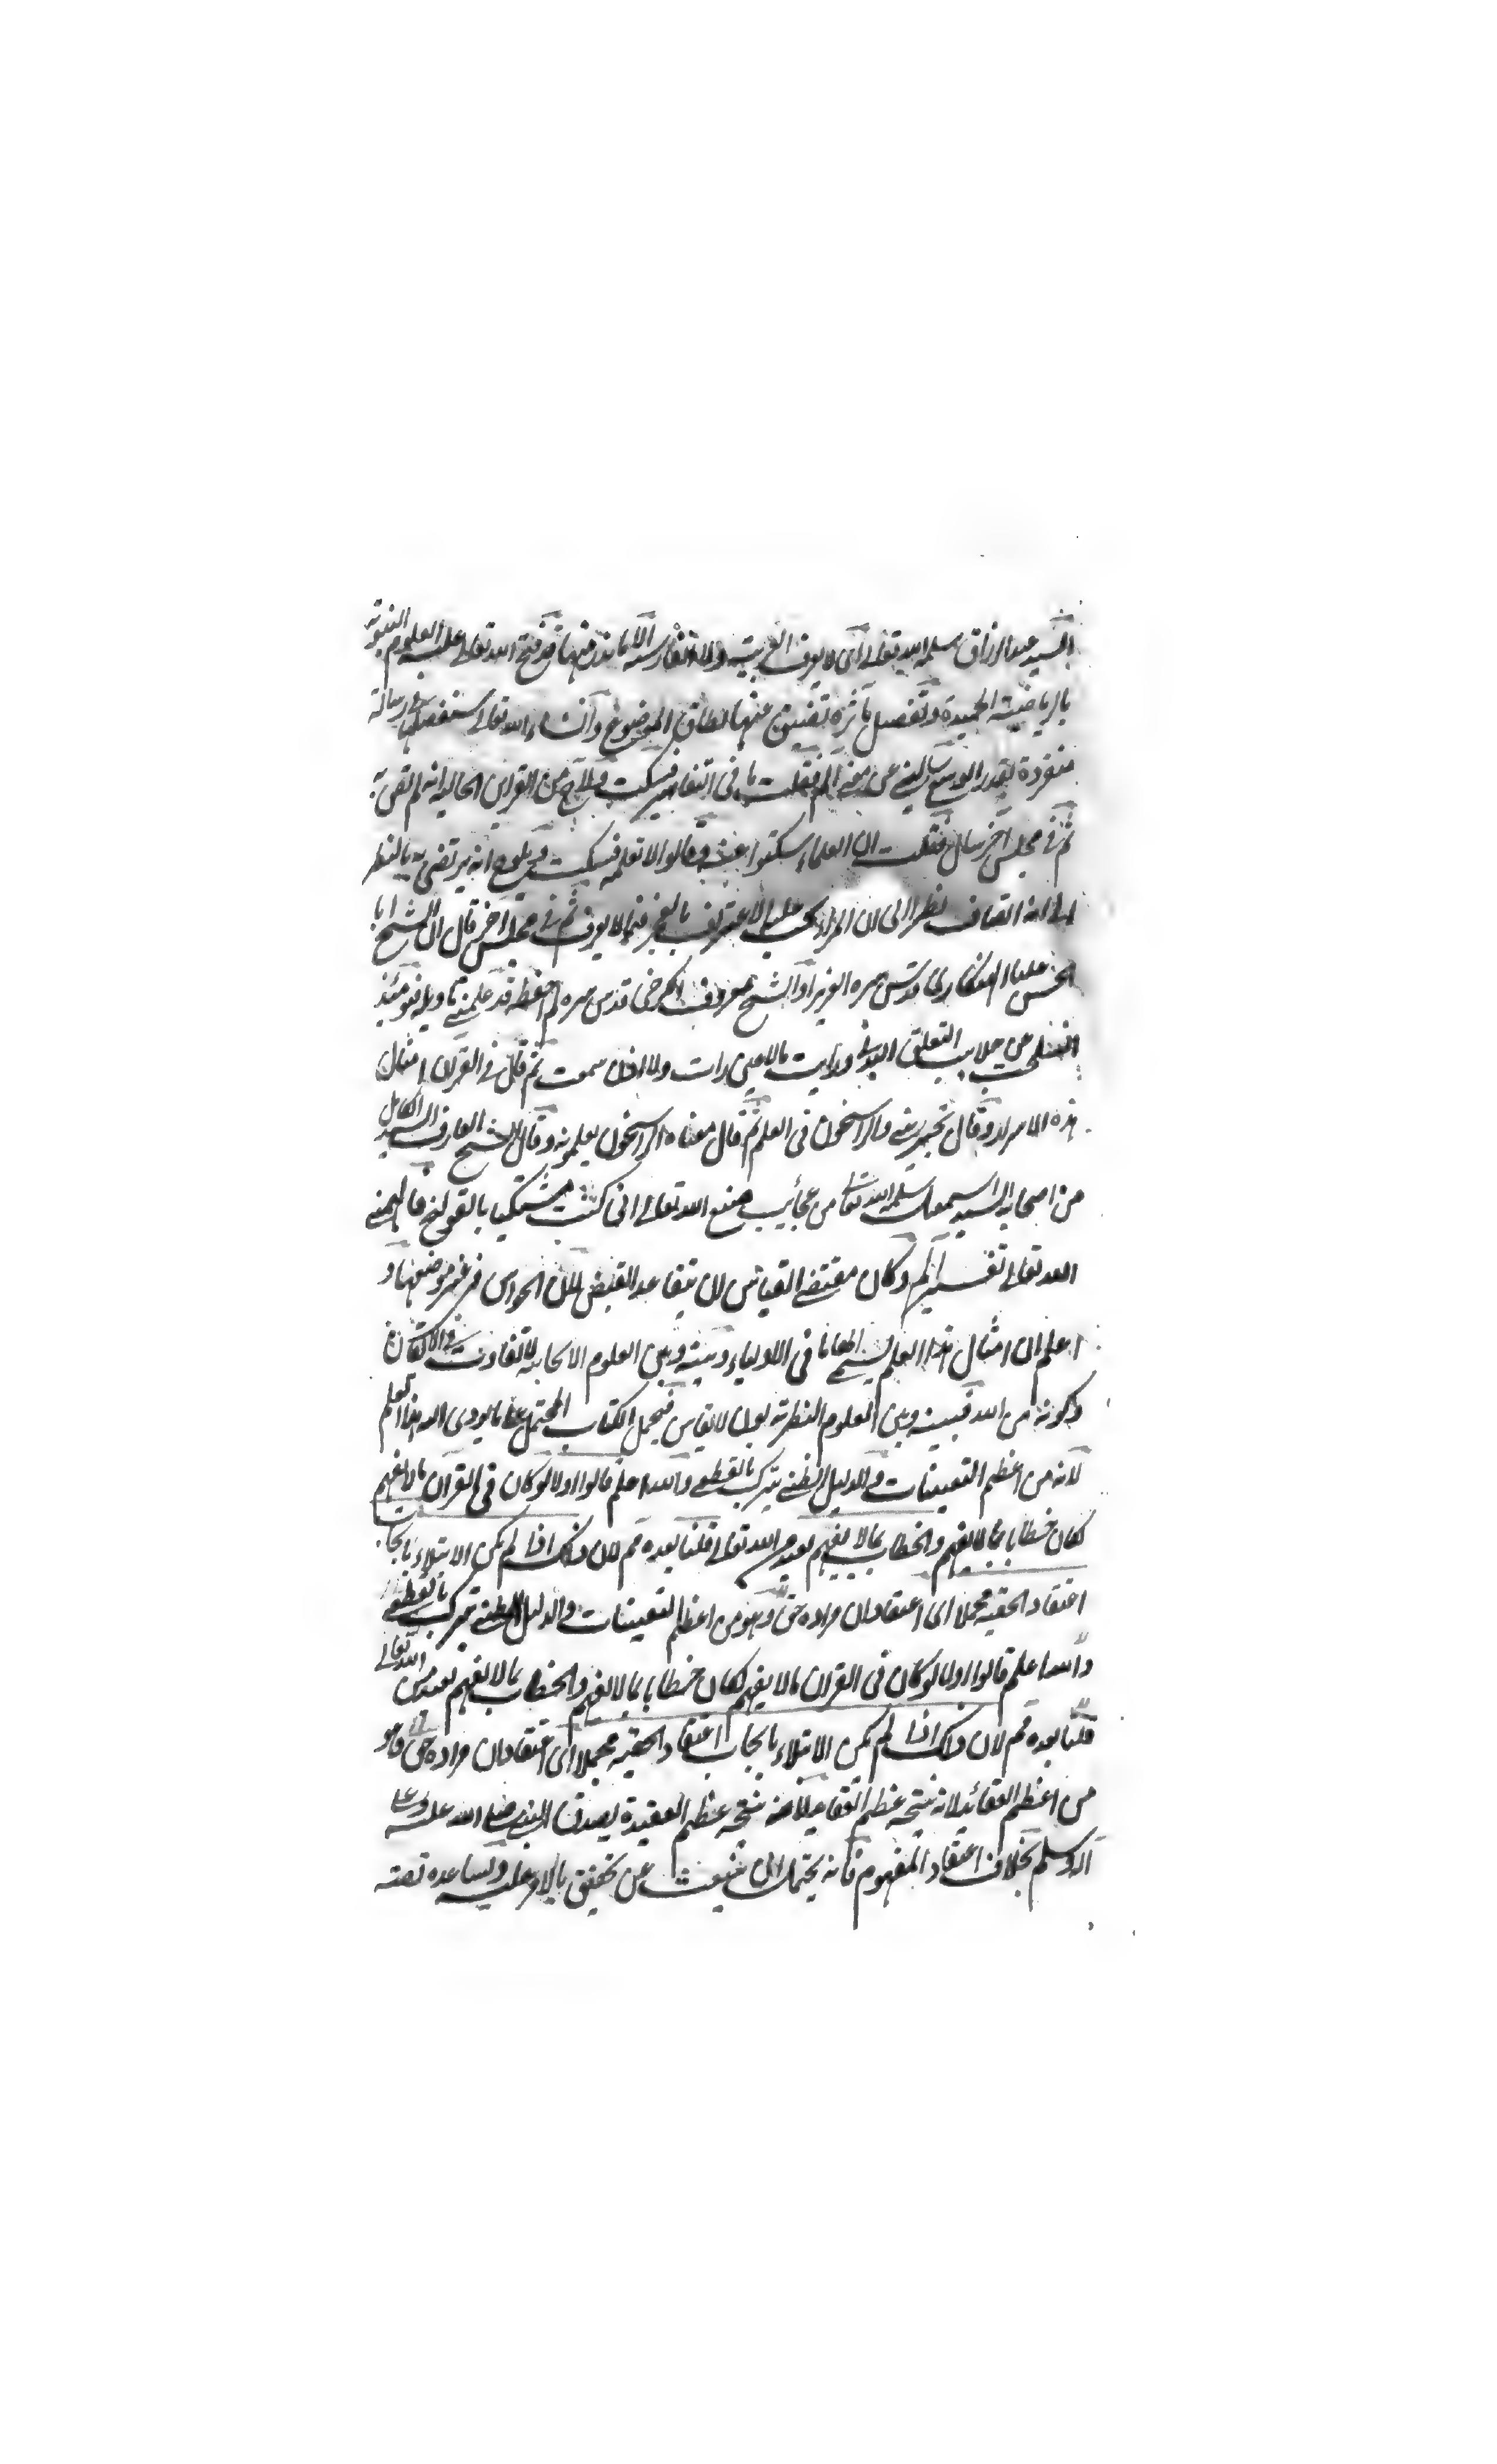 السيد عبد الرزاق سلمه الله تعالى امى لا يعرف العربية ولا الفارسية الا ما ندر منها قد فتح الله تعالى عليه العلوم النبوية
بالرياضية الحميدة وتفصيل مآثره تضيق عنها نطاق الموضوع وان شاء الله تعالى سنفصلها فى رسالة
منفردة بقدر الوسع سالنى عن معنى الم فقلت ما فى التفاسير فسكت ولاح من القرائن الحالية انه لم تقن به
ثم فى مجلس آخر سال فقلت ان العلماء سكتوا عنه وقالوا لا نعلمه فسكت ويلوح انه يرتضى به بالنظر
الى انه انصاف نظرا الى ان المرء يجب عليه الاعتراف بالعجز فيما لا يعرف ثم فى مجلس آخر قال ان الشيخ ابا
الحسن عليا قدس سره العزيز او الشيخ معروف الكرخى قدس سره لم احفظه قد علمنى تاويله فيومئذ
انسلخت من جلابيب التعلق البدنى ورايت ما لا عين رات ولا اذن سمعت ثم قال فى القرآن امثال
هذه الاسرار وقال تجبرينى والراسخون فى العلم ثم قال معناه الراسخون يعلمونه وقال الشيخ العارف السيد الكامل
من اصحابه السيد اسمعيل سلمه الله تعالى من عجائب صنع الله تعالى انى كنت مشتكيا بالقولنج فالهمنى
الله تعالى تفسير الم وكان مقتضى القياس ان يتقاعد القبض لان الحواس فى غير موضعها و
اعلم ان امثال هذا العلم يسمى الهاما فى الاولياء وبينه وبين العلوم الاكتسابية لا تفاوت فى الاتقان
وكونه من الله فبينه وبين العلوم النظرية بون لا يقاس فيحمل الكتاب المحتمل على ما يودى اليه هذا العلم
لانه من اعظم التعيينات والدليل الظنى يترك بالقطعى والله اعلم قالوا اولا لو كان فى القرآن ما لا يفهم
لكان خطابا بما لا يفهم والخطاب بما لا يفهم بعيد من الله تعالى قلنا بعده مم لان ذلك اذا لم يكن الابتلاء بايجاب
اعتقاد الحقية مجملا اى اعتقاد ان مراده حق وهو من اعظم التعيينات والدليل الظنى يترك بالقطعى
والله اعلم قالوا اولا لو كان فى القرآن ما لا يفهم لكان خطابا بما لا يفهم والخطاب بما لا يفهم بعيد من الله تعالى
قلنا بعده مم لان ذلك اذا لم يكن الابتلاء بايجاب اعتقاد الحقية مجملا اى اعتقاد ان مراده حق فانه
من اعظم العقائد لانه نتيجة عظم العقيدة بصدق النبى صلى الله عليه وعلى
آله وسلم بخلاف اعتقاد المفهوم فانه يحتمل ان ينبعث عن تحقيق بالامر عليه ويساعده